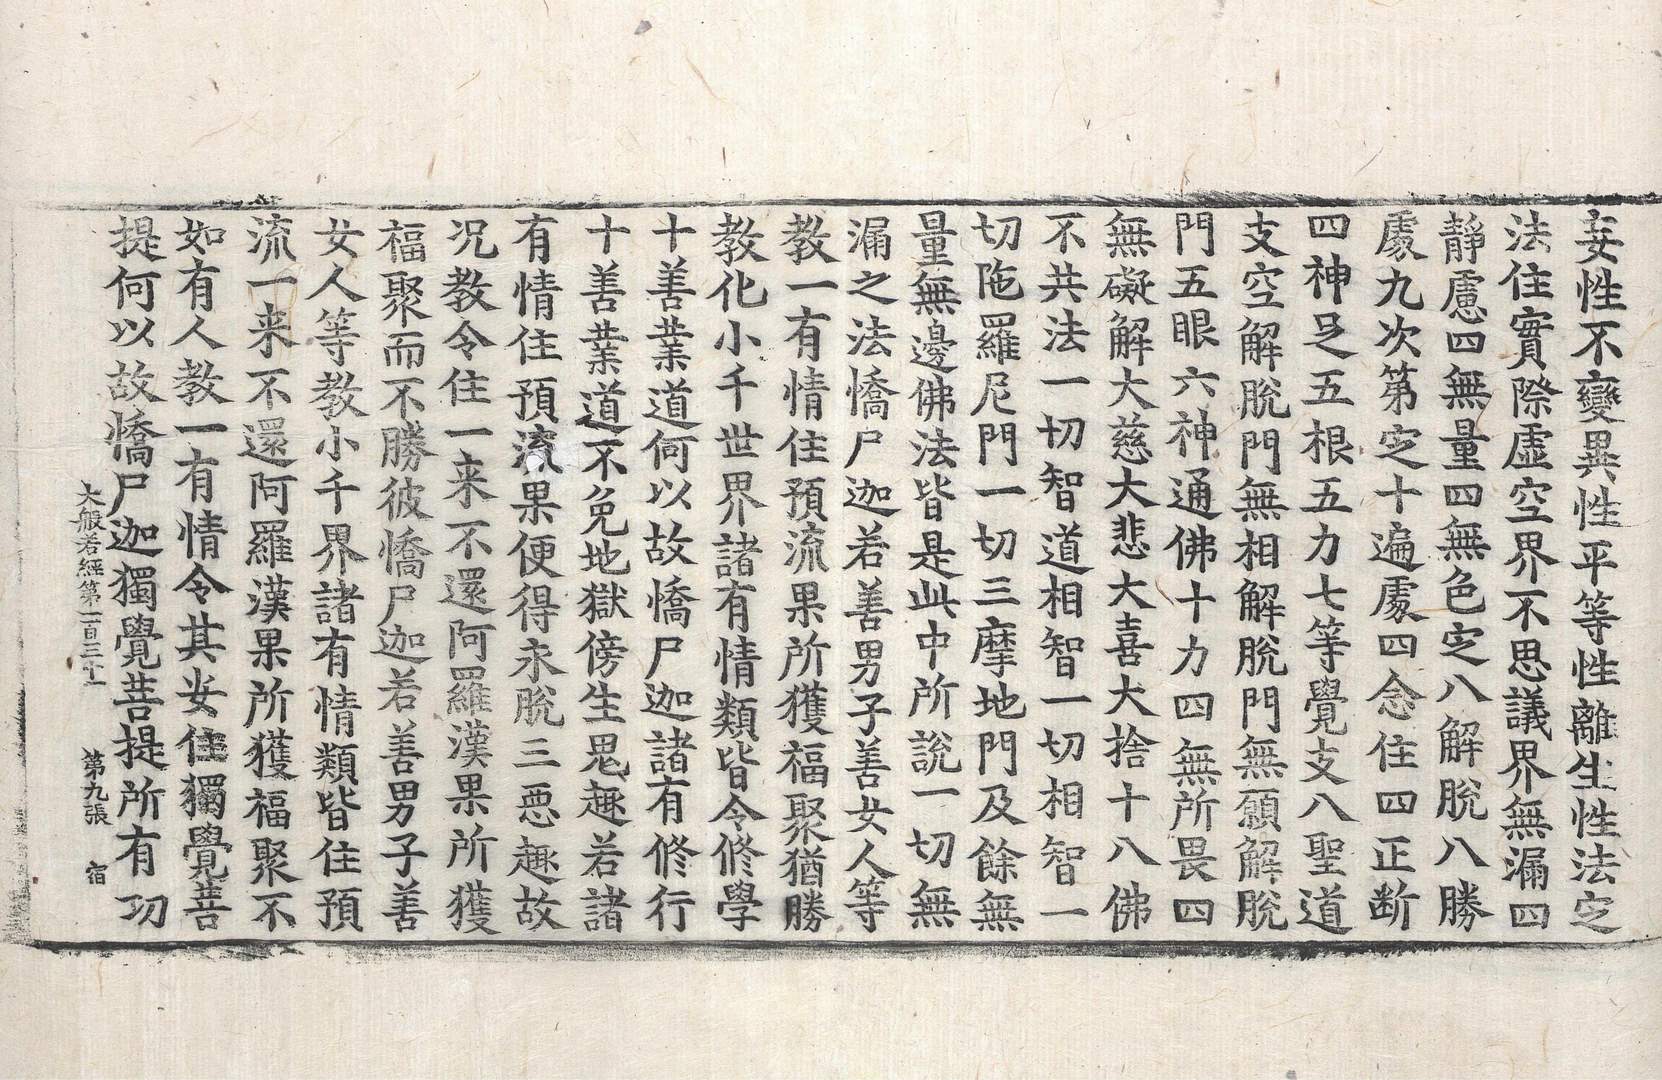 妄性不變異性平等性離生性法定
法住實際虛空界不思議界無漏四
靜慮四無量四無色定八解脫八勝
處九次第定十遍處四念住四正断
四神足五根五力七等覺支八聖道
支空解脫門無相解脫門無願解脫
門五眼六神通佛十力四無所畏四
無礙解大慈大悲大喜大捨十八佛
不共法一切智道相智一切相智一
切陁羅尼門一切三摩地門及餘無
量無邊佛法皆是此中所說一切無
漏之法憍尸迦若善男子善女人等
教一有情住預流果所獲福聚猶勝
教化小千世界諸有情類皆令修學
十善業道何以故憍尸迦諸有修行
十善業道不免地獄傍生鬼趣若諸
有情住預流果便得永脫三惡趣故
况教令住一来不還阿羅漢果所獲
福聚而不勝彼憍尸迦若善男子善
女人等教小千界諸有情類皆住預
流一来不還阿羅漢果所獲福聚不
如有人教一有情令其安住獨覺菩
提何以故憍尸迦獨覺菩提所有功
大般若經第一百三十 第九張 宿